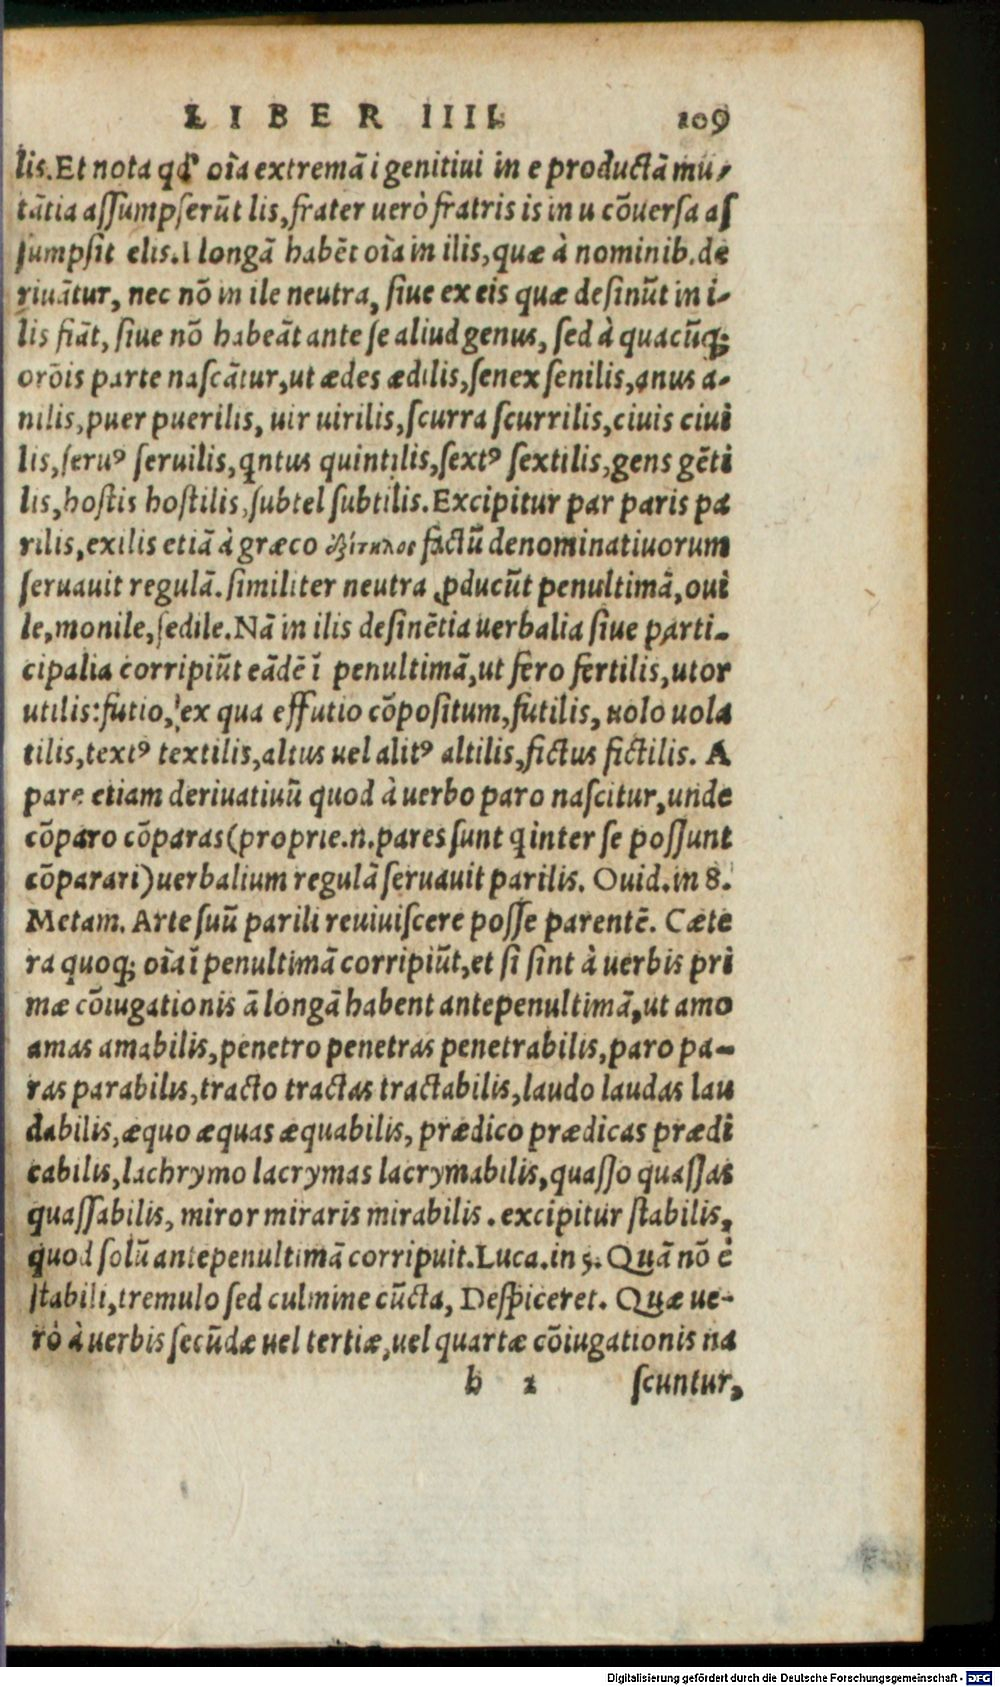 LIBER IIII. 109
lis. Et nota qđ oı̃a extremã i genitiui in e productã mu-
tãtia aſſumpſerũt lis, frater uerò fratris is in u cõuerſa aſ
ſumpſit elis. I longã habẽt oı̃a in ilis, quæ à nominib. de
riuãtur, nec nõ in ile neutra, ſiue ex eis quæ deſinũt in i-
lis fiãt, ſiue nõ habeãt ante ſe aliud genus, ſed à quacũq;
orõis parte naſcãtur, ut ædes ædilis, ſenex ſenilis, anus a-
nilis, puer puerilis, uir uirilis, ſcurra ſcurrilis, ciuis ciui
lis, ſeruꝰ ſeruilis, qntus quintilis, ſextꝰ ſextilis, gens gẽti
lis, hoſtis hoſtilis, ſubtel ſubtilis. Excipitur par paris pa
rilis, exilis etiã à græco factũ denominatiuorum
ſeruauit regulã. ſimiliter neutra ꝓducũt penultimã, oui
le, monile, ſedile. Nã in ilis deſinẽtia uerbalia ſiue parti-
cipalia corripiũt eãdẽ ĩ penultimã, ut fero fertilis, utor
utilis: futio, ex qua effutio cõpoſitum, futilis, uolo uola
tilis, textꝰ textilis, altus uel alitꝰ altilis, fictus fictilis. A
pare etiam deriuatiuũ quod à uerbo paro naſcitur, unde
cõparo cõparas (proprie.n.pares ſunt q inter ſe poſſunt
cõparari) uerbalium regulã ſeruauit parilis. Ouid. in 8.
Metam. Arte ſuũ parili reuiuiſcere poſſe parentẽ. Cæte
ra quoq; oı̃a ĩ penultimã corripiũt, et ſi ſint à uerbis pri
mæ cõiugationis ã longã habent antepenultimã, ut amo
amas amabilis, penetro penetras penetrabilis, paro pa-
ras parabilis, tracto tractas tractabilis, laudo laudas lau
dabilis, æquo æquas æquabilis, prædico prædicas prædi
cabilis, lachrymo lacrymas lacrymabilis, quaſſo quaſſas
quaſſabilis, miror miraris mirabilis. excipitur ſtabilis,
quod ſolũ antepenultimã corripuit. Luca. in 5. Quã nõ è
ſtabili, tremulo ſed culmine cũcta, Deſpiceret. Quæ ue-
rò à uerbis ſecũdæ uel tertiæ, uel quartæ cõiugationis na
b 2 ſcuntur,
Digitalisierung gefördert durch die Deutsche Forschungsgemeinschaft - DFG